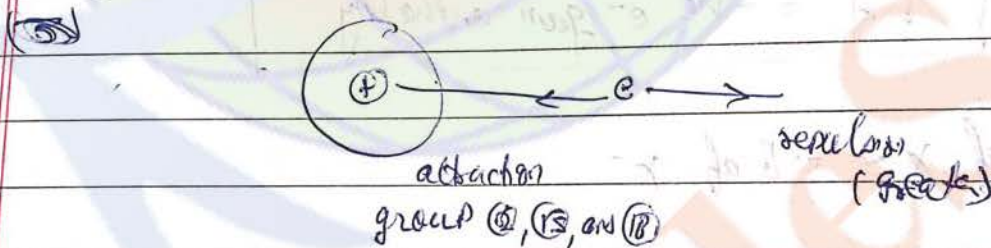 +
e
attraction
repulsion
(greater)
group ②, ⑮, and ⑱